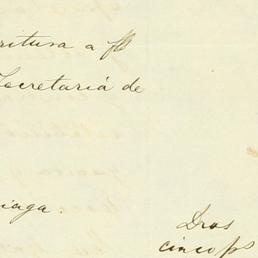 ritura a fs
Secretaria de
iaga.
Dros
cinco ps